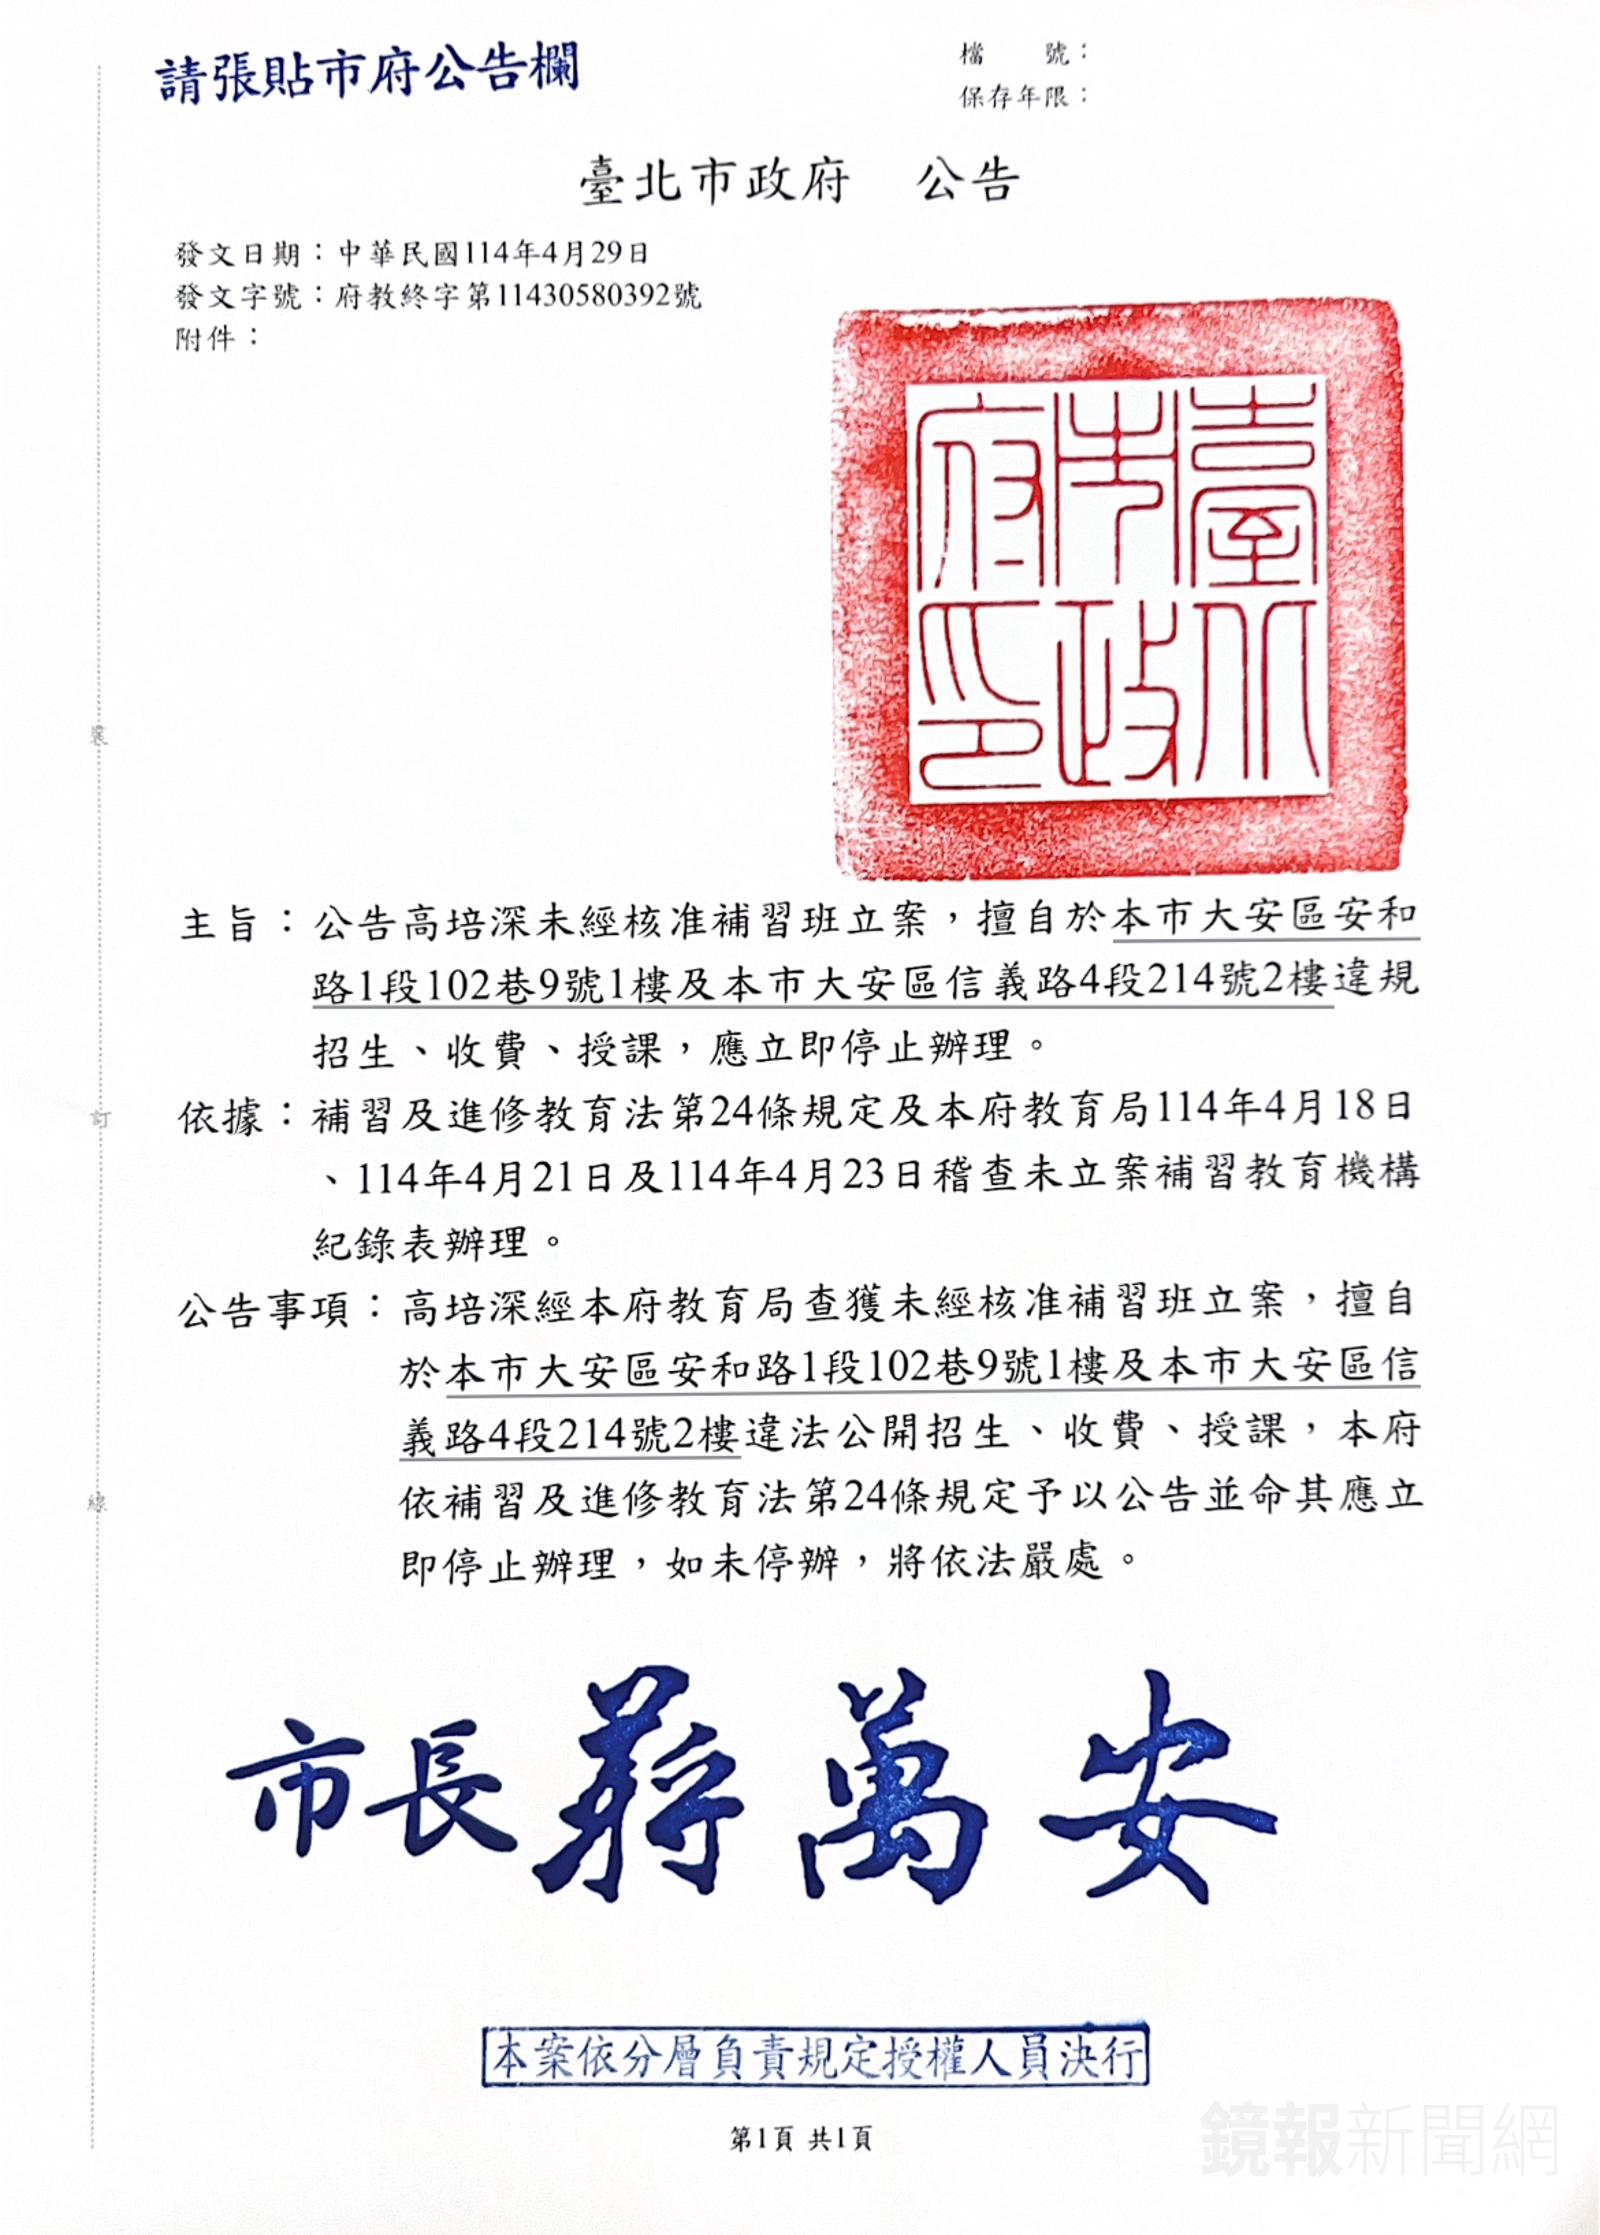 請張貼市府公告欄
檔　　號：
保存年限：
臺北市政府　公告
發文日期：中華民國114年4月29日
發文字號：府教終字第11430580392號
附件：
臺北市政府印
主旨：公告高培深未經核准補習班立案，擅自於本市大安區安和
路1段102巷9號1樓及本市大安區信義路4段214號2樓違規
招生、收費、授課，應立即停止辦理。
依據：補習及進修教育法第24條規定及本府教育局114年4月18日
、114年4月21日及114年4月23日稽查未立案補習教育機構
紀錄表辦理。
公告事項：高培深經本府教育局查獲未經核准補習班立案，擅自
於本市大安區安和路1段102巷9號1樓及本市大安區信
義路4段214號2樓違法公開招生、收費、授課，本府
依補習及進修教育法第24條規定予以公告並命其應立
即停止辦理，如未停辦，將依法嚴處。
裝
訂
線
市長蔣萬安
本案依分層負責規定授權人員決行
第1頁 共1頁
鏡報新聞網